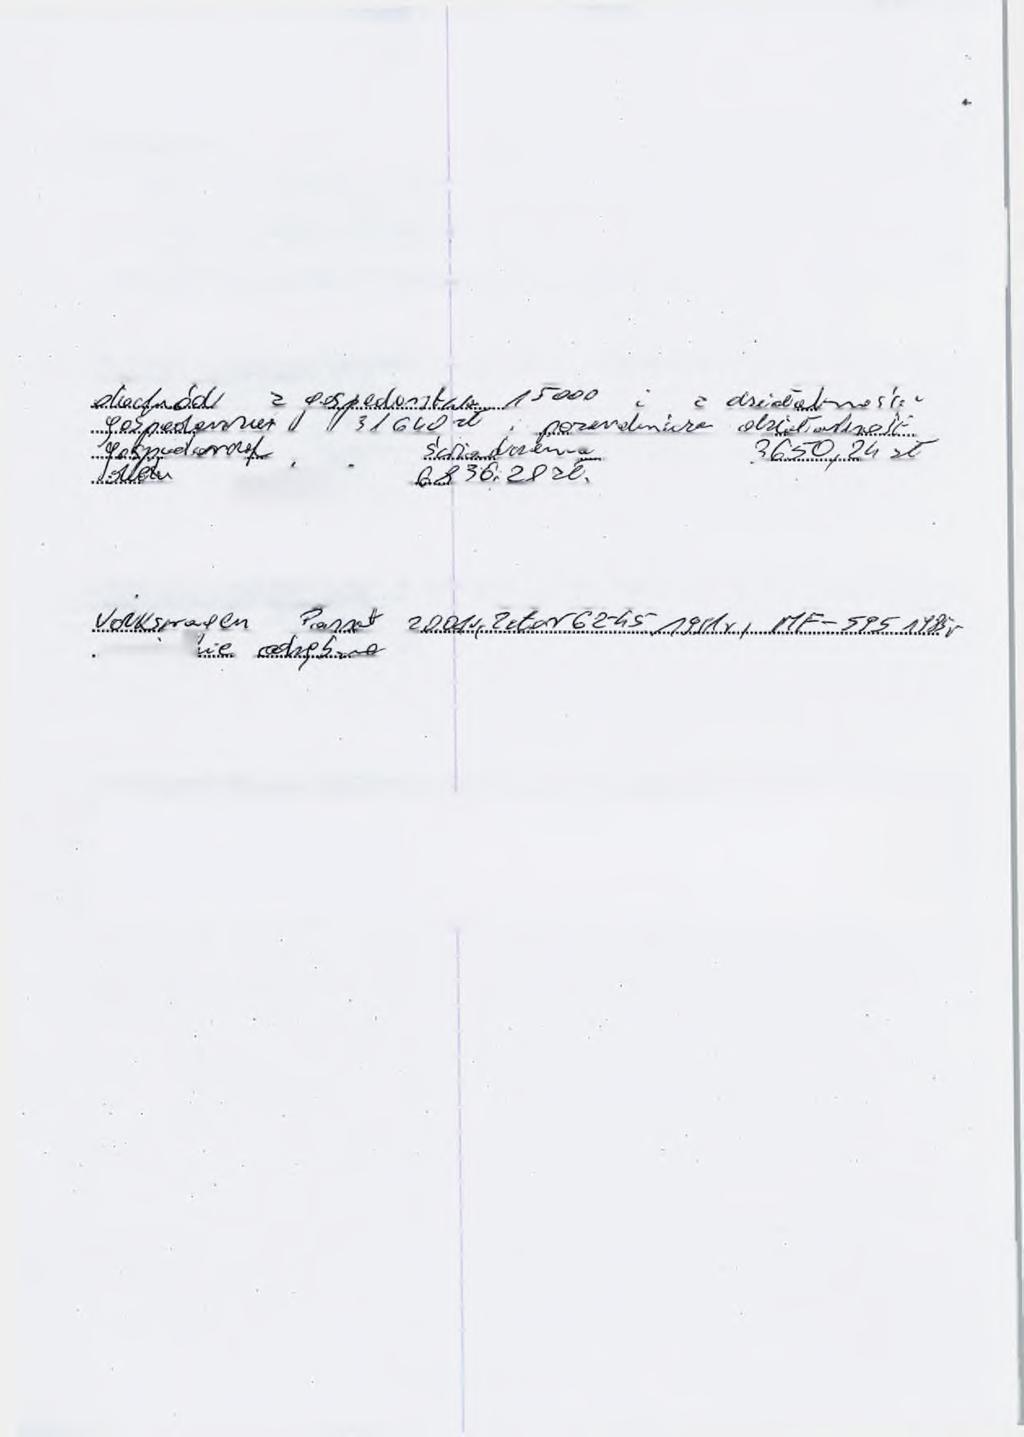 dochód z gospodarstwa 15000 i z działalności
gospodarczej 31640 zł i pozarolnicza działalność
gospodarcza świadczenia 3650,24 zł
6836.28 zł.
Volkswagen Passat 2001r, Zetor 6245 1981r, MF-595 1983r
nie odrębna